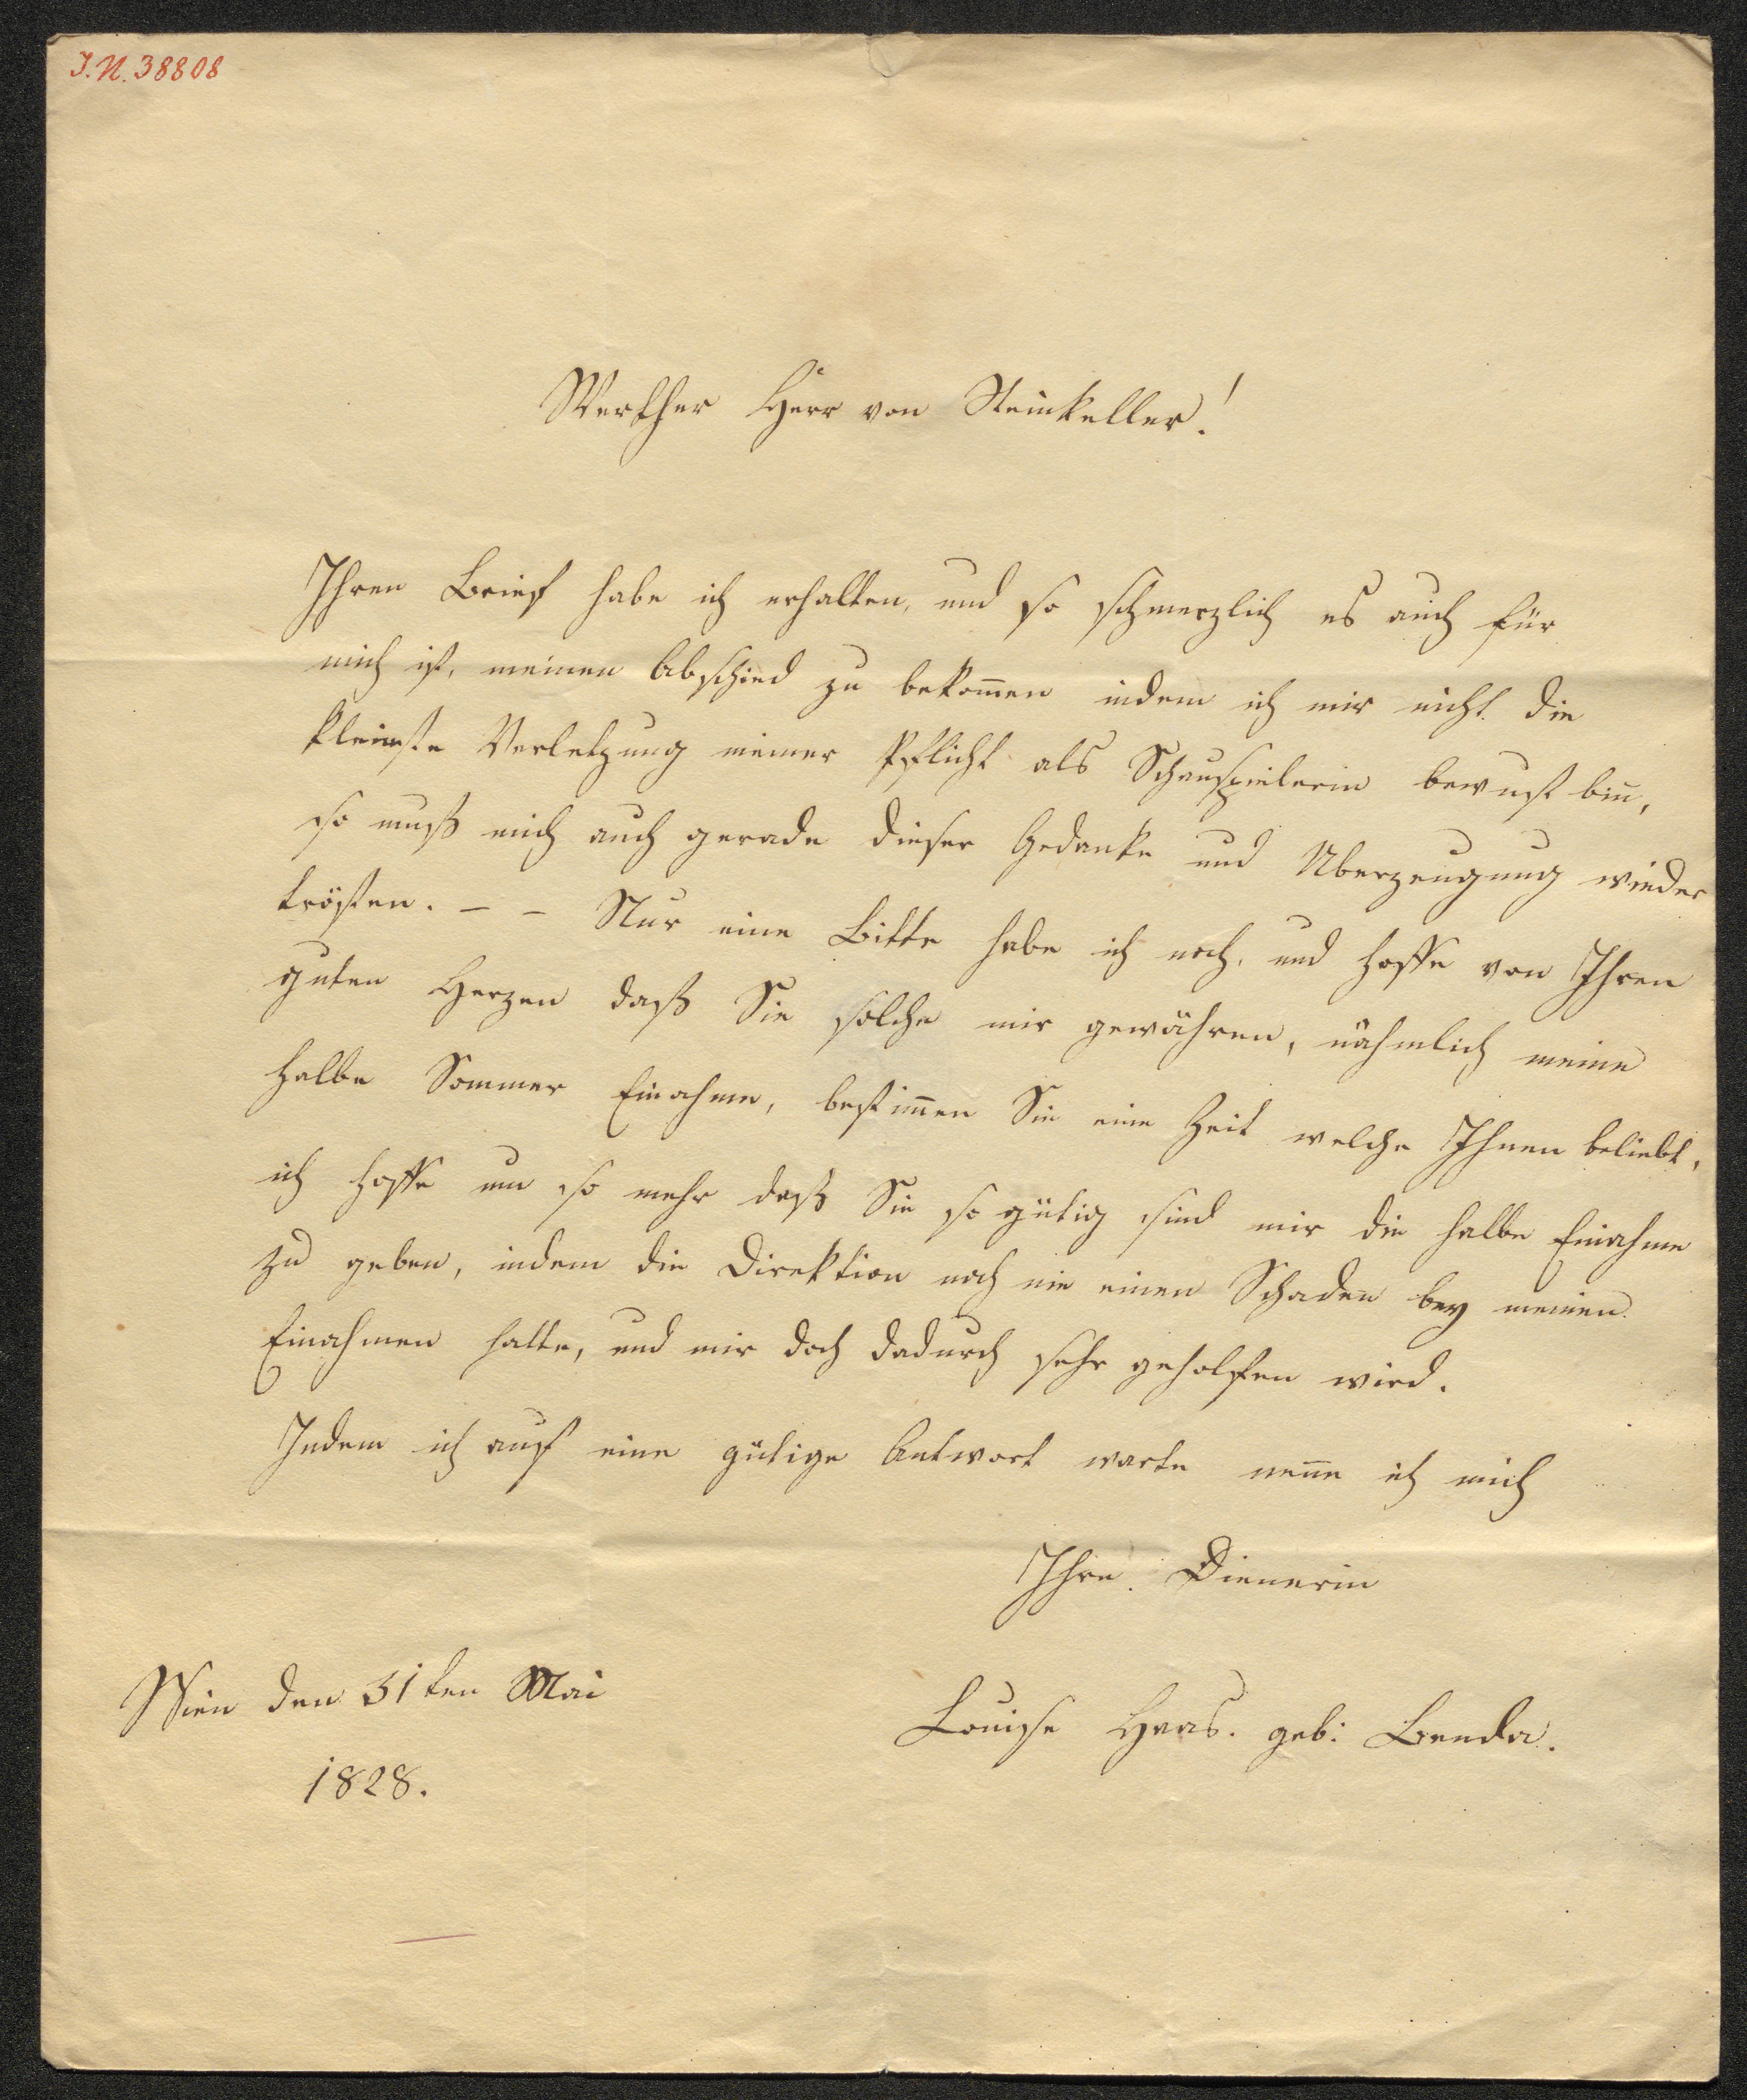 I.N. 38808
Werther Herr von Steinkeller!
Ihren Brief habe ich erhalten, und so schmerzlich es auch für
mich ist, meinen Abschied zu bekom̅en indem ich mir nicht die
kleinste Verletzung meiner Pflicht als Schauspielerin bewust bin,
so muß mich auch gerade dieser Gedanke und Uberzeugung wieder
trösten. – – Nur eine Bitte habe ich noch, und hoffe von Ihren
guten Herzen daß Sie solche mir gewähren, nähmlich meine
halbe Sommer Einahme, bestim̅en Sie eine Zeit welche Ihnen beliebt,
ich hoffe um so mehr daß Sie so gütig sind mir die halbe Einahme
zu geben, indem die Direktion noch nie einen Schaden bey meinen
Einahmen hatte, und mir doch dadurch sehr geholfen wird.
Indem ich auf eine gütige Antwort warte nen̅e ich mich
Ihre Dienerin
Wien den 31ten Mai
Louise Haas. geb: Benda.
1828.